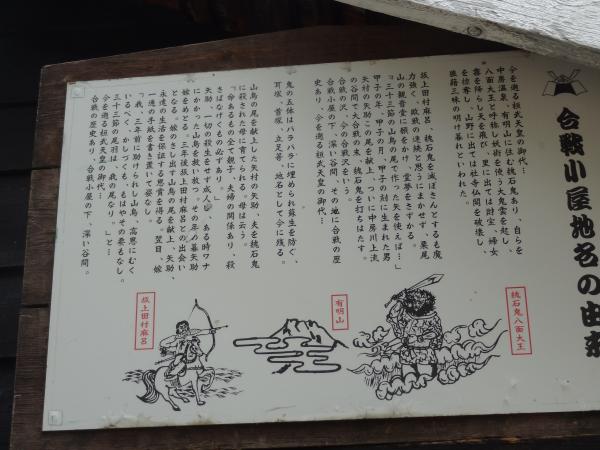 合戦小屋地名の由来
今を遡る桓武天皇の御代…
中房温泉、有明山に住む魏石鬼あり、自らを
八面大王と呼称し妖術を使う大鬼雲を起し、
霧を降らし天を飛び、里に出ては財宝、婦女
を掠奪し、山野に出ては社寺仏閣を破壊し、
狼藉三昧の明け暮れといわれた。
坂上田村麻呂、魏石鬼を滅ぼさんとするも魔
力強く、敗戦の連続と思うにまかせず、栗尾
山の観音堂に願をかけ、霊夢をさずかる。
「三十三節の山鳥の尾羽で作った矢を使えば…」
甲子の年、甲子の月、甲子の刻に生まれた男
矢村の矢助この尾羽を献上、ついに中房川上流
の谷間で大合戦の末、魏石鬼を打ちはたす。
合戦の沢、今の合戦沢をいう。
合戦小屋の下、深い谷間、その地に合戦の歴
史あり、今を遡る桓武天皇の御代…
鬼の五体はバラバラに埋められ蘇生を防ぐ、
耳塚、首塚、立足等、地名として今に残る。
山鳥の尾を献上した矢村の矢助、夫を魏石鬼
に殺された母に育てられる。母は云う。
「命あるもの全て親子、夫婦の関係あり、殺
さばなげくもの必ずあり。」
矢助、一切の殺生をせず成人し、ある時ワナ
にかかった山鳥を救け放つ。その年の暮矢助
嫁をめとる。三年後坂上田村麻呂との出会い
となる。嫁のさし出す山鳥の尾を献上、矢助、
永遠の生活を保証する恩賞を得る。翌日、嫁
一通の手紙を書き置いて姿なし。
「我、三年前に助けられし山鳥、高恩にむく
いるべく、かしづくも、もはやその要もなし。
三十三節の尾羽は、我の尾なり。」と…
今を遡る桓武天皇の御代…
合戦の歴史あり、合戦小屋の下、深い谷間。
魏石鬼八面大王
有明山
坂上田村麻呂